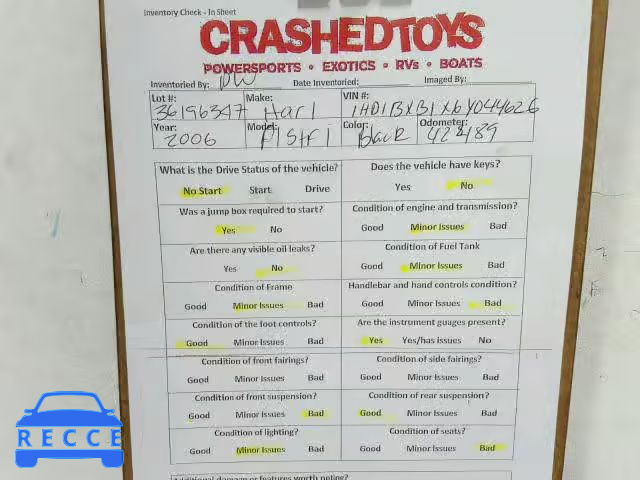 Inventory Check - In Sheet
CRASHEDTOYS
POWERSPORTS • EXOTICS • RVs • BOATS
Inventoried By: DW Date Inventoried: Imaged By:
Lot #: Make: VIN #:
36196347 Harl 1HD1BXB1X6Y044626
Year: Model: Color: Odometer:
2006 FlStFI Black 42489
What is the Drive Status of the vehicle? Does the vehicle have keys?
No Start Start Drive Yes No
Was a jump box required to start? Condition of engine and transmission?
Yes No Good Minor Issues Bad
Are there any visible oil leaks? Condition of Fuel Tank
Yes No Good Minor Issues Bad
Condition of Frame Handlebar and hand controls condition?
Good Minor Issues Bad Good Minor Issues Bad
Condition of the foot controls? Are the instrument guages present?
Good Minor Issues Bad Yes Yes/has issues No
Condition of front fairings? Condition of side fairings?
Good Minor Issues Bad Good Minor Issues Bad
Condition of front suspension? Condition of rear suspension?
Good Minor Issues Bad Good Minor Issues Bad
Condition of lighting? Condition of seats?
Good Minor Issues Bad Good Minor Issues Bad
Additional damage or features worth noting?
RECCE